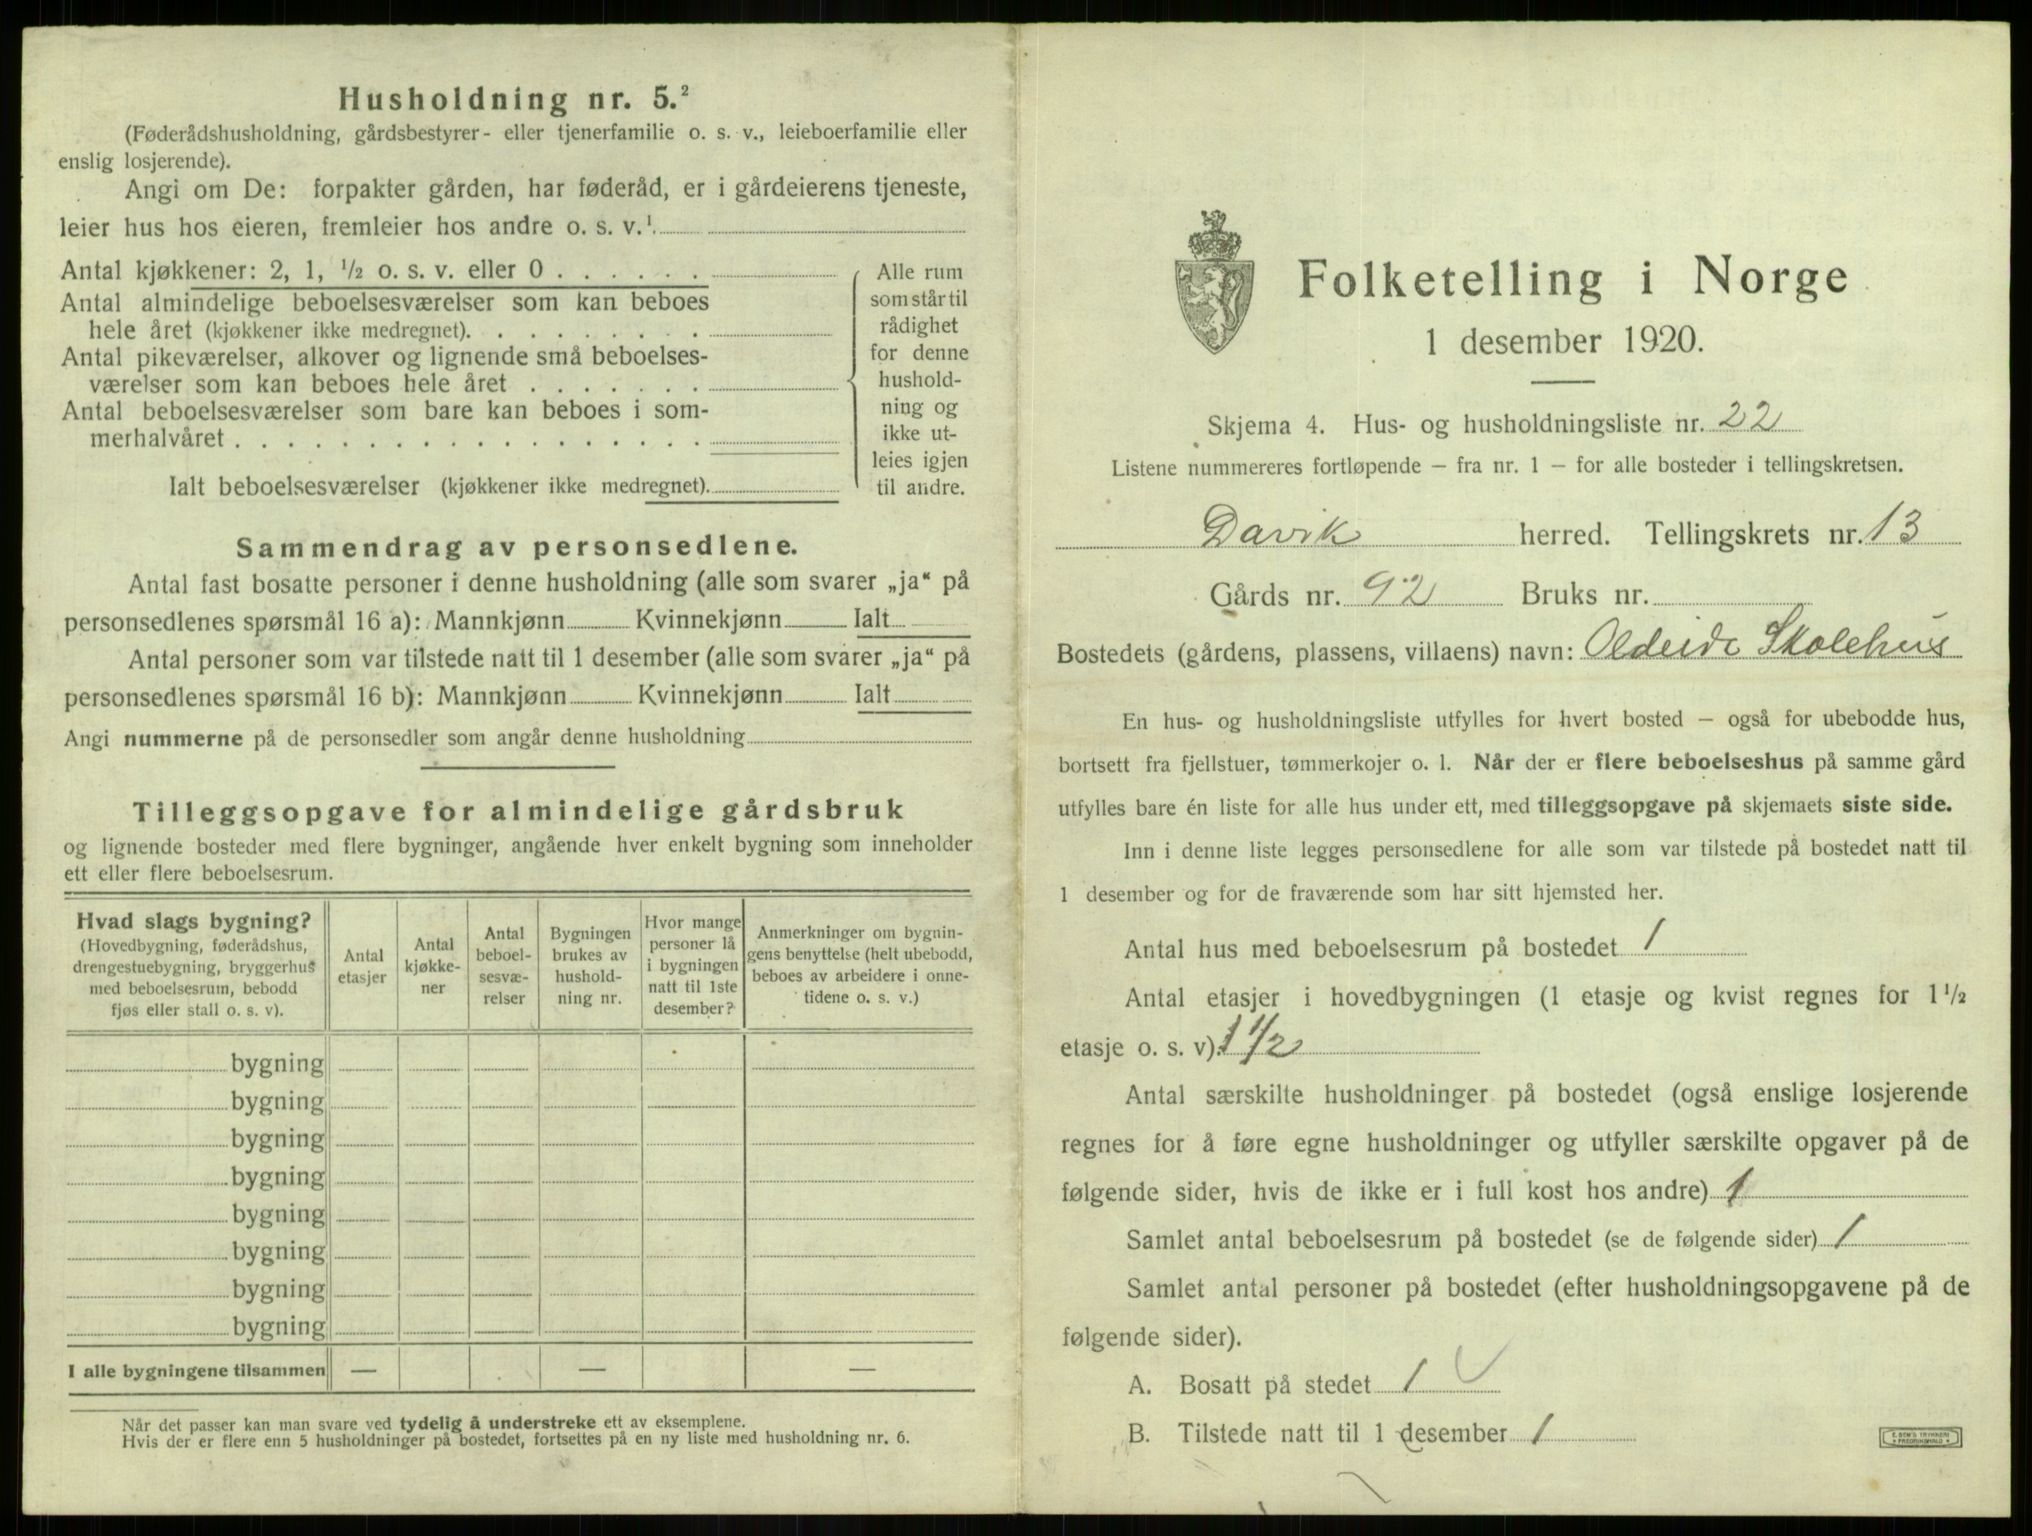 Husholdning nr. 5.²
(Føderådshusholdning, gårdsbestyrer- eller tjenerfamilie o. s. v., leieboerfamilie eller
enslig losjerende).
Angi om De: forpakter gården, har føderåd, er i gårdeierens tjeneste,
leier hus hos eieren, fremleier hos andre o. s. v.¹
Antal kjøkkener: 2, 1, ½ o. s. v. eller 0 . . . . . .
Antal almindelige beboelsesværelser som kan beboes
hele året (kjøkkener ikke medregnet). . . . . . . . .
Antal pikeværelser, alkover og lignende små beboelses-
værelser som kan beboes hele året . . . . . . .
Antal beboelsesværelser som bare kan beboes i som-
merhalvåret . . . . . . . . . . . . . . . . . .
Ialt beboelsesværelser (kjøkkener ikke medregnet).
Alle rum
som står til
rådighet
for denne
hushold-
ning og
ikke ut-
leies igjen
til andre.
Sammendrag av personsedlene.
Antal fast bosatte personer i denne husholdning (alle som svarer „ja“ på
personsedlenes spørsmål 16 a): Mannkjønn Kvinnekjønn Ialt
Antal personer som var tilstede natt til 1 desember (alle som svarer „ja“ på
personsedlenes spørsmål 16 b): Mannkjønn Kvinnekjønn Ialt
Angi nummerne på de personsedler som angår denne husholdning
Tilleggsopgave for almindelige gårdsbruk
og lignende bosteder med flere bygninger, angående hver enkelt bygning som inneholder
ett eller flere beboelsesrum.
Hvad slags bygning?
(Hovedbygning, føderådshus,
drengestuebygning, bryggerhus
med beboelsesrum, bebodd
fjøs eller stall o. s. v).
Antal
etasjer
Antal
kjøkke-
ner
Antal
beboel-
sesvæ-
relser
Bygningen
brukes av
hushold-
ning nr.
Hvor mange
personer lå
i bygningen
natt til 1ste
desember?
Anmerkninger om bygnin-
gens benyttelse (helt ubebodd,
beboes av arbeidere i onne-
tidene o. s. v.)
bygning
bygning
bygning
bygning
bygning
bygning
bygning
bygning
I alle bygningene tilsammen — — —
Når det passer kan man svare ved tydelig å understreke ett av eksemplene.
Hvis der er flere enn 5 husholdninger på bostedet, fortsettes på en ny liste med husholdning nr. 6.
Folketelling i Norge
1 desember 1920.
Skjema 4. Hus- og husholdningsliste nr. 22
Listene nummereres fortløpende – fra nr. 1 – for alle bosteder i tellingskretsen.
Davik herred. Tellingskrets nr. 13
Gårds nr. 92 Bruks nr.
Bostedets (gårdens, plassens, villaens) navn: Oldeide Skolehus
En hus- og husholdningsliste utfylles for hvert bosted – også for ubebodde hus,
bortsett fra fjellstuer, tømmerkojer o. l. Når der er flere beboelseshus på samme gård
utfylles bare én liste for alle hus under ett, med tilleggsopgave på skjemaets siste side.
Inn i denne liste legges personsedlene for alle som var tilstede på bostedet natt til
1 desember og for de fraværende som har sitt hjemsted her.
Antal hus med beboelsesrum på bostedet 1
Antal etasjer i hovedbygningen (1 etasje og kvist regnes for 1½
etasje o. s. v). 1 1/2
Antal særskilte husholdninger på bostedet (også enslige losjerende
regnes for å føre egne husholdninger og utfyller særskilte opgaver på de
følgende sider, hvis de ikke er i full kost hos andre) 1
Samlet antal beboelsesrum på bostedet (se de følgende sider) 1
Samlet antal personer på bostedet (efter husholdningsopgavene på de
følgende sider).
A. Bosatt på stedet 1
B. Tilstede natt til 1 desember 1